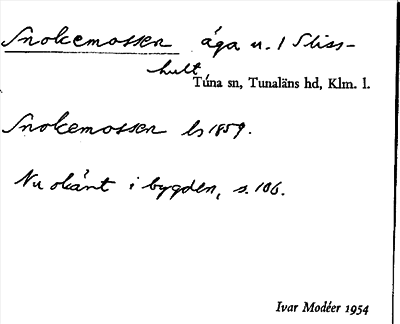 Snokemossen äga u. 1 Sliss-
hult
Túna sn, Tunaläns hd, Klm. l.
Snokemossen ls 1859.
Nu okänt i bygden, s. 106.
Ivar Modéer 1954